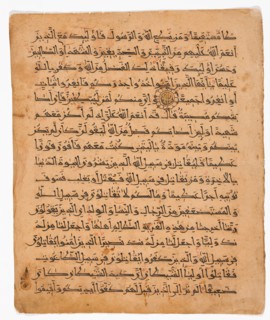 صراطا مستقيما ومن يطع الله والرسول فأولئك مع الذين
أنعم الله عليهم من النبيين والصديقين والشهداء والصالحين
وحسن أولئك رفيقا ذلك الفضل من الله وكفى بالله
عليما يأيها الذين ءامنوا خذوا حذركم فانفروا ثبات
أو انفروا جميعا وإن منكم لمن ليبطئن فإن أصا
بتكم مصيبة قال قد أنعم الله علي إذ لم أكن معهم
شهيدا ولئن أصابكم فضل من الله ليقولن كأن لم تكن
بينكم وبينه مودة يليتني كنت معهم فأفوز فوزا
عظيما فليقتل في سبيل الله الذين يشرون الحيوة الدنيا
بالآخرة ومن يقتل في سبيل الله فيقتل أو يغلب فسوف
نؤتيه أجرا عظيما وما لكم لا تقتلون في سبيل الله
والمستضعفين من الرجال والنساء والولدان الذين يقولون
ربنا أخرجنا من هذه القرية الظالم أهلها واجعل لنا من
لدنك وليا واجعل لنا من لدنك نصيرا الذين ءامنوا يقتلون
في سبيل الله والذين كفروا يقتلون في سبيل الطاغوت
فقتلوا أولياء الشيطان إن كيد الشيطان كان
ضعيفا ألم تر إلى الذين قيل لهم كفوا أيديكم وأقيموا